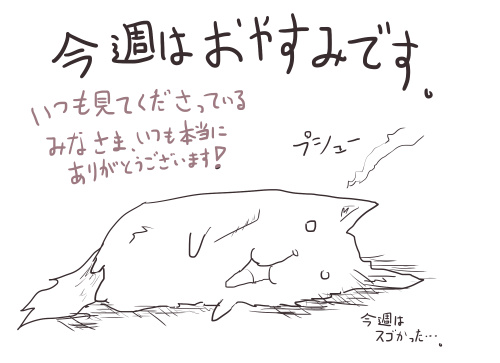 今週はおやすみです。
いつも見てくださっている
みなさま、いつも本当に
ありがとうございます!
プシュー
今週は
スゴかった…。